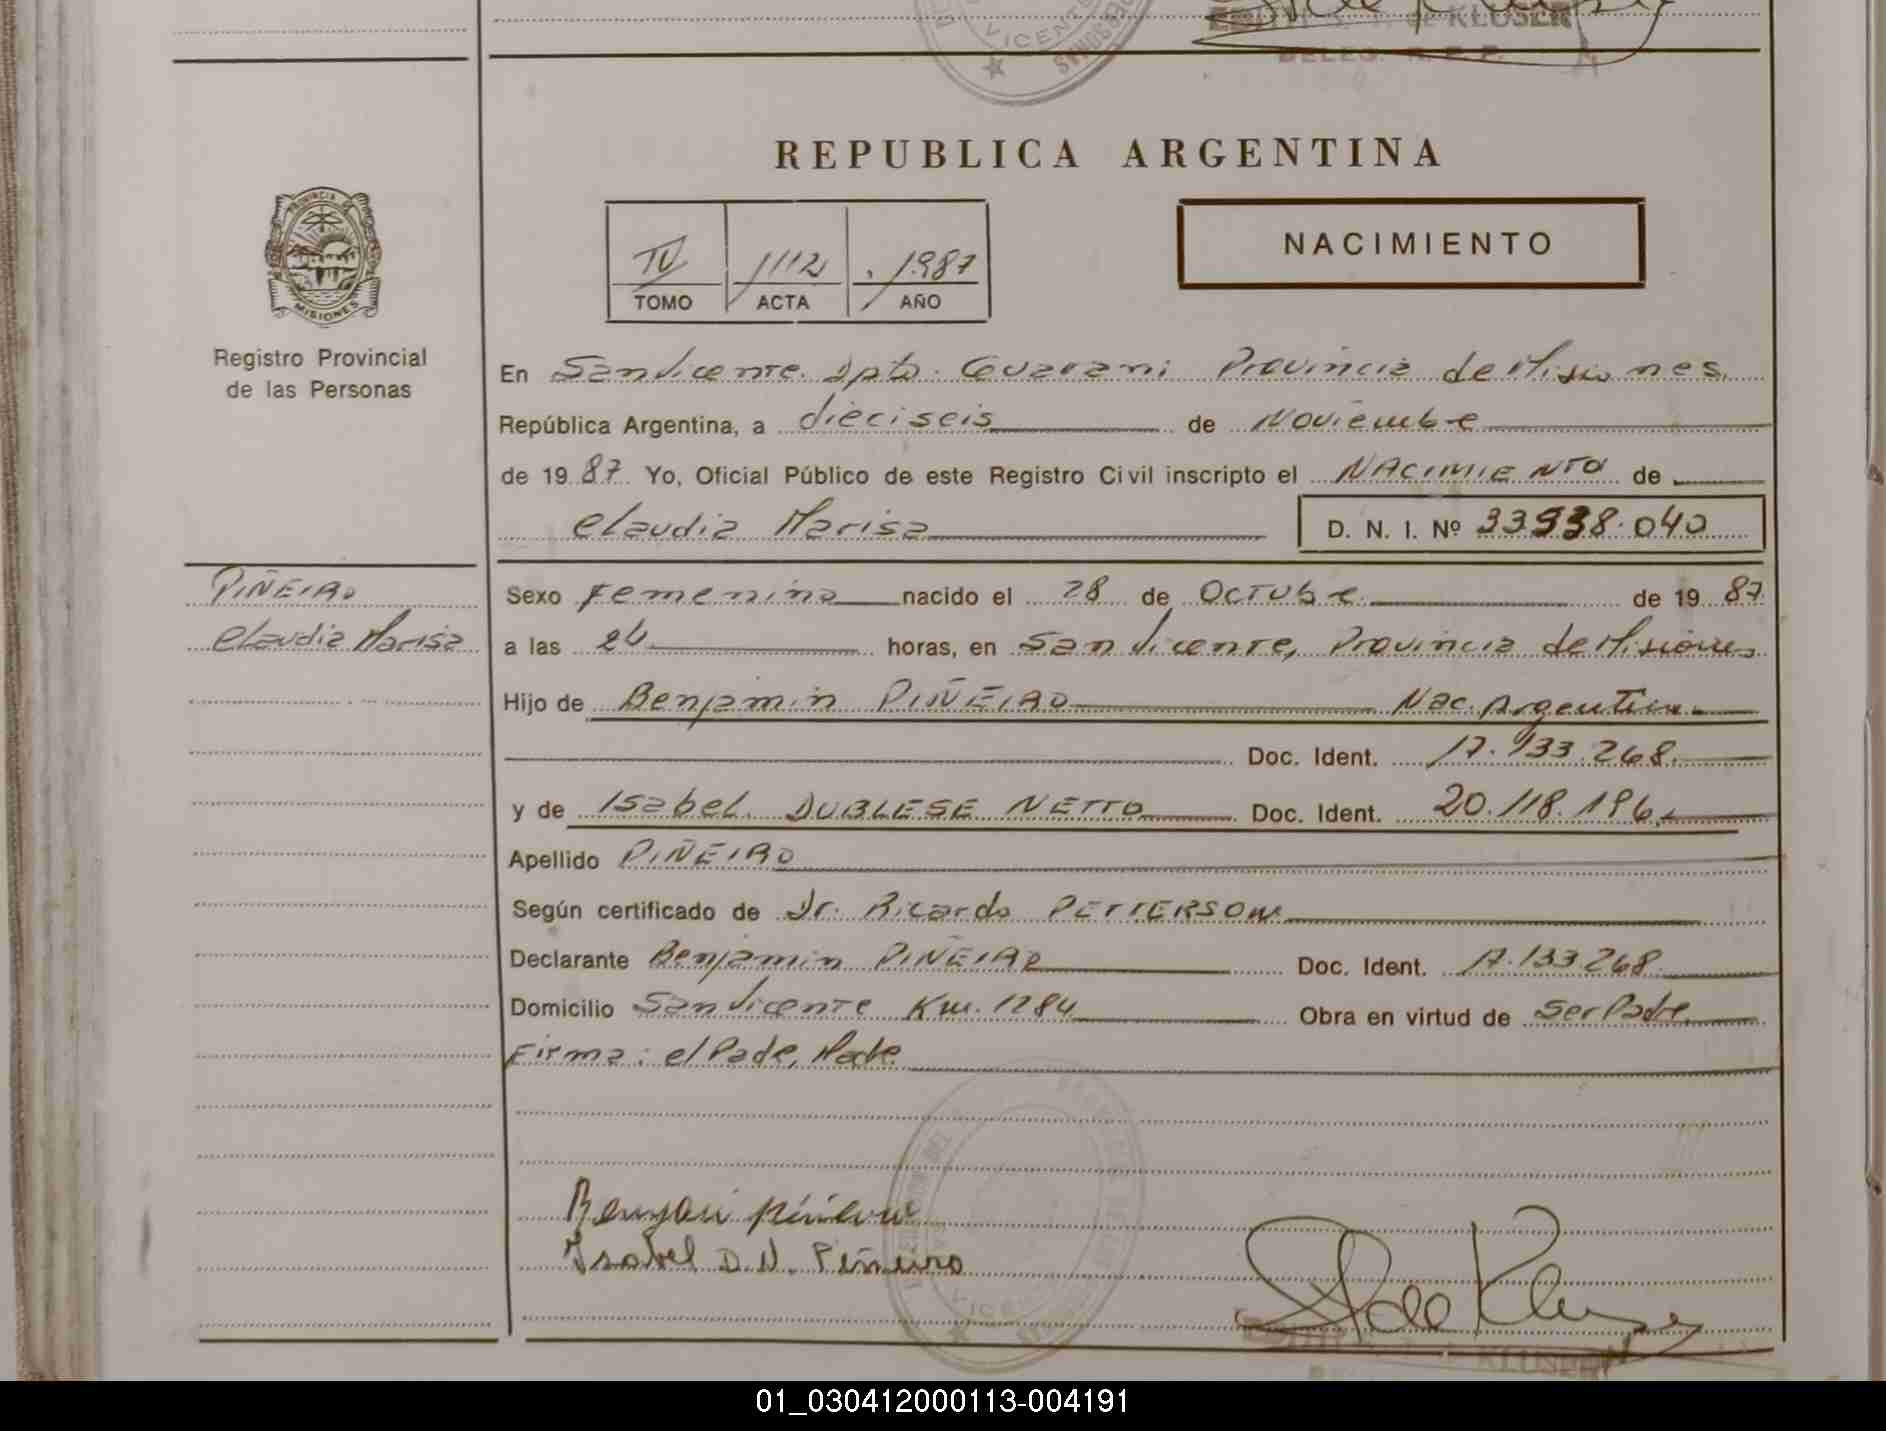 de KLUSER
DELEG. R. P. P.
VICENTE
REPUBLICA ARGENTINA
PROVINCIA DE
MISIONES
Registro Provincial
de las Personas
IV 1112 1987
TOMO ACTA AÑO
NACIMIENTO
En San Vicente. Dpto. Guarani Provincia de Misiones
República Argentina, a dieciseis de Noviembre
de 1987 Yo, Oficial Público de este Registro Civil inscripto el NACIMIENTO de
Claudia Marisa D. N. I. Nº 33.938.040
PIÑEIRO
Claudia Marisa
Sexo femenino nacido el 28 de OCTUbre de 1987
a las 24 horas, en San Vicente, Provincia de Misiones
Hijo de Benjamin PIÑEIRO Nac. Argentina
Doc. Ident. 17.133.268.
y de Isabel DUBLESE NETTO Doc. Ident. 20.118.196
Apellido PIÑEIRO
Según certificado de Dr. Ricardo PETTERSON
Declarante Benjamin PIÑEIRO Doc. Ident. 17.133268
Domicilio San Vicente Km. 1284 Obra en virtud de ser Padre
Firma: el Padre, Madre
Isabel D. N. Piñeiro
VICENTE
de KLUSER
01_030412000113-004191